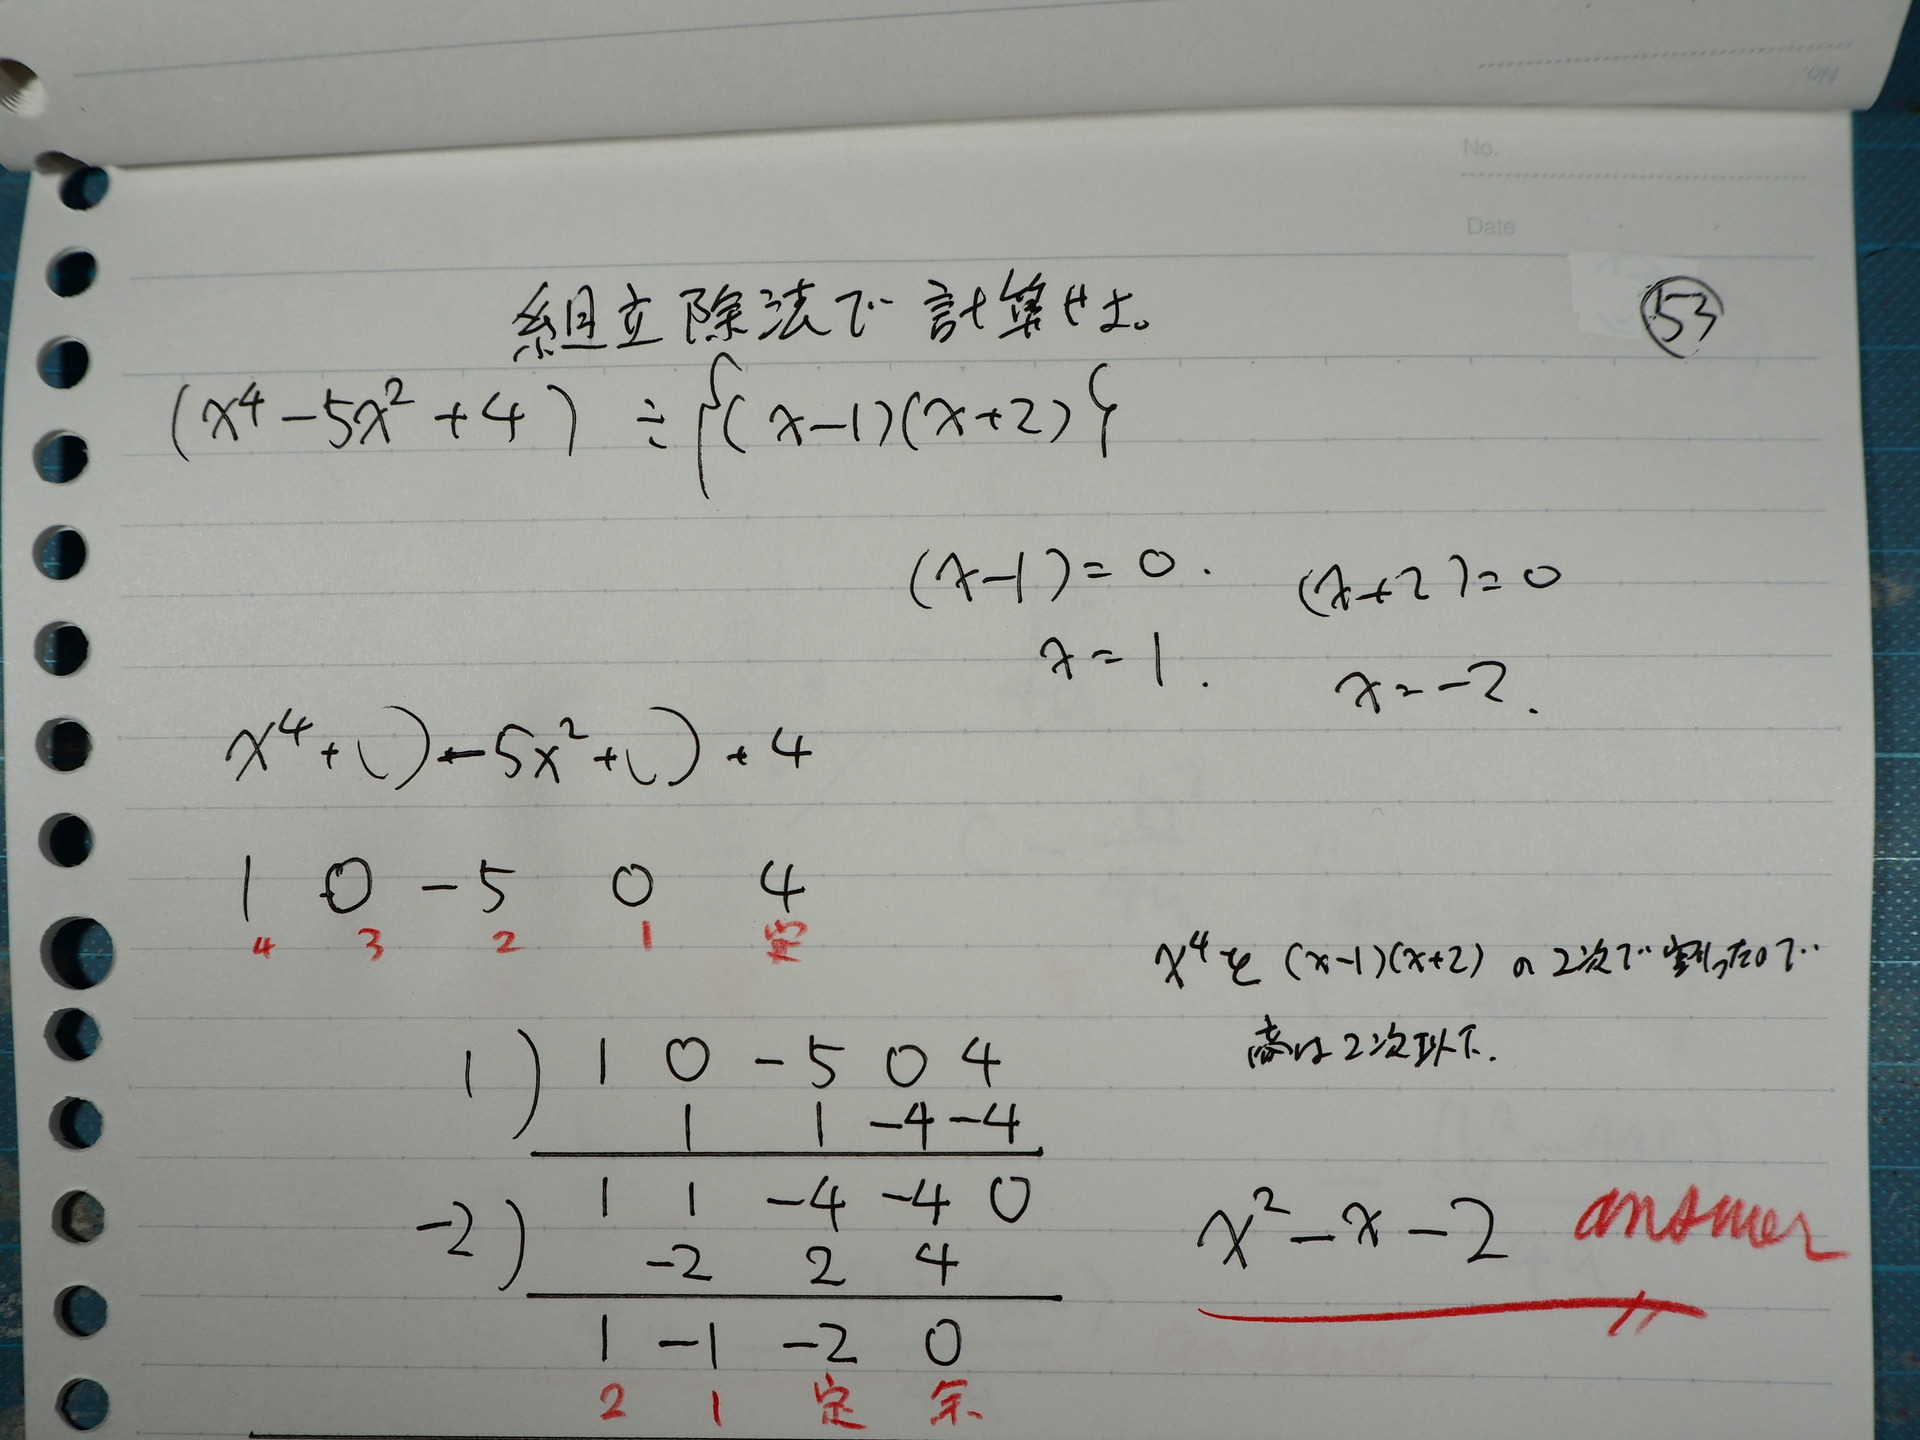 No.
No.
Date
組立除法で計算せよ。
53
(x⁴-5x²+4)÷{(x-1)(x+2)}
(x-1)=0.
(x+2)=0
x=1.
x=-2.
x⁴+( )-5x²+( )+4
1 0 -5 0 4
4 3 2 1 定
x⁴を(x-1)(x+2)の2次で割ったので
商は2次以下.
1) 1 0 -5 0 4
1 1 -4 -4
-2) 1 1 -4 -4 0
-2 2 4
x²-x-2 answer
1 -1 -2 0
2 1 定 余